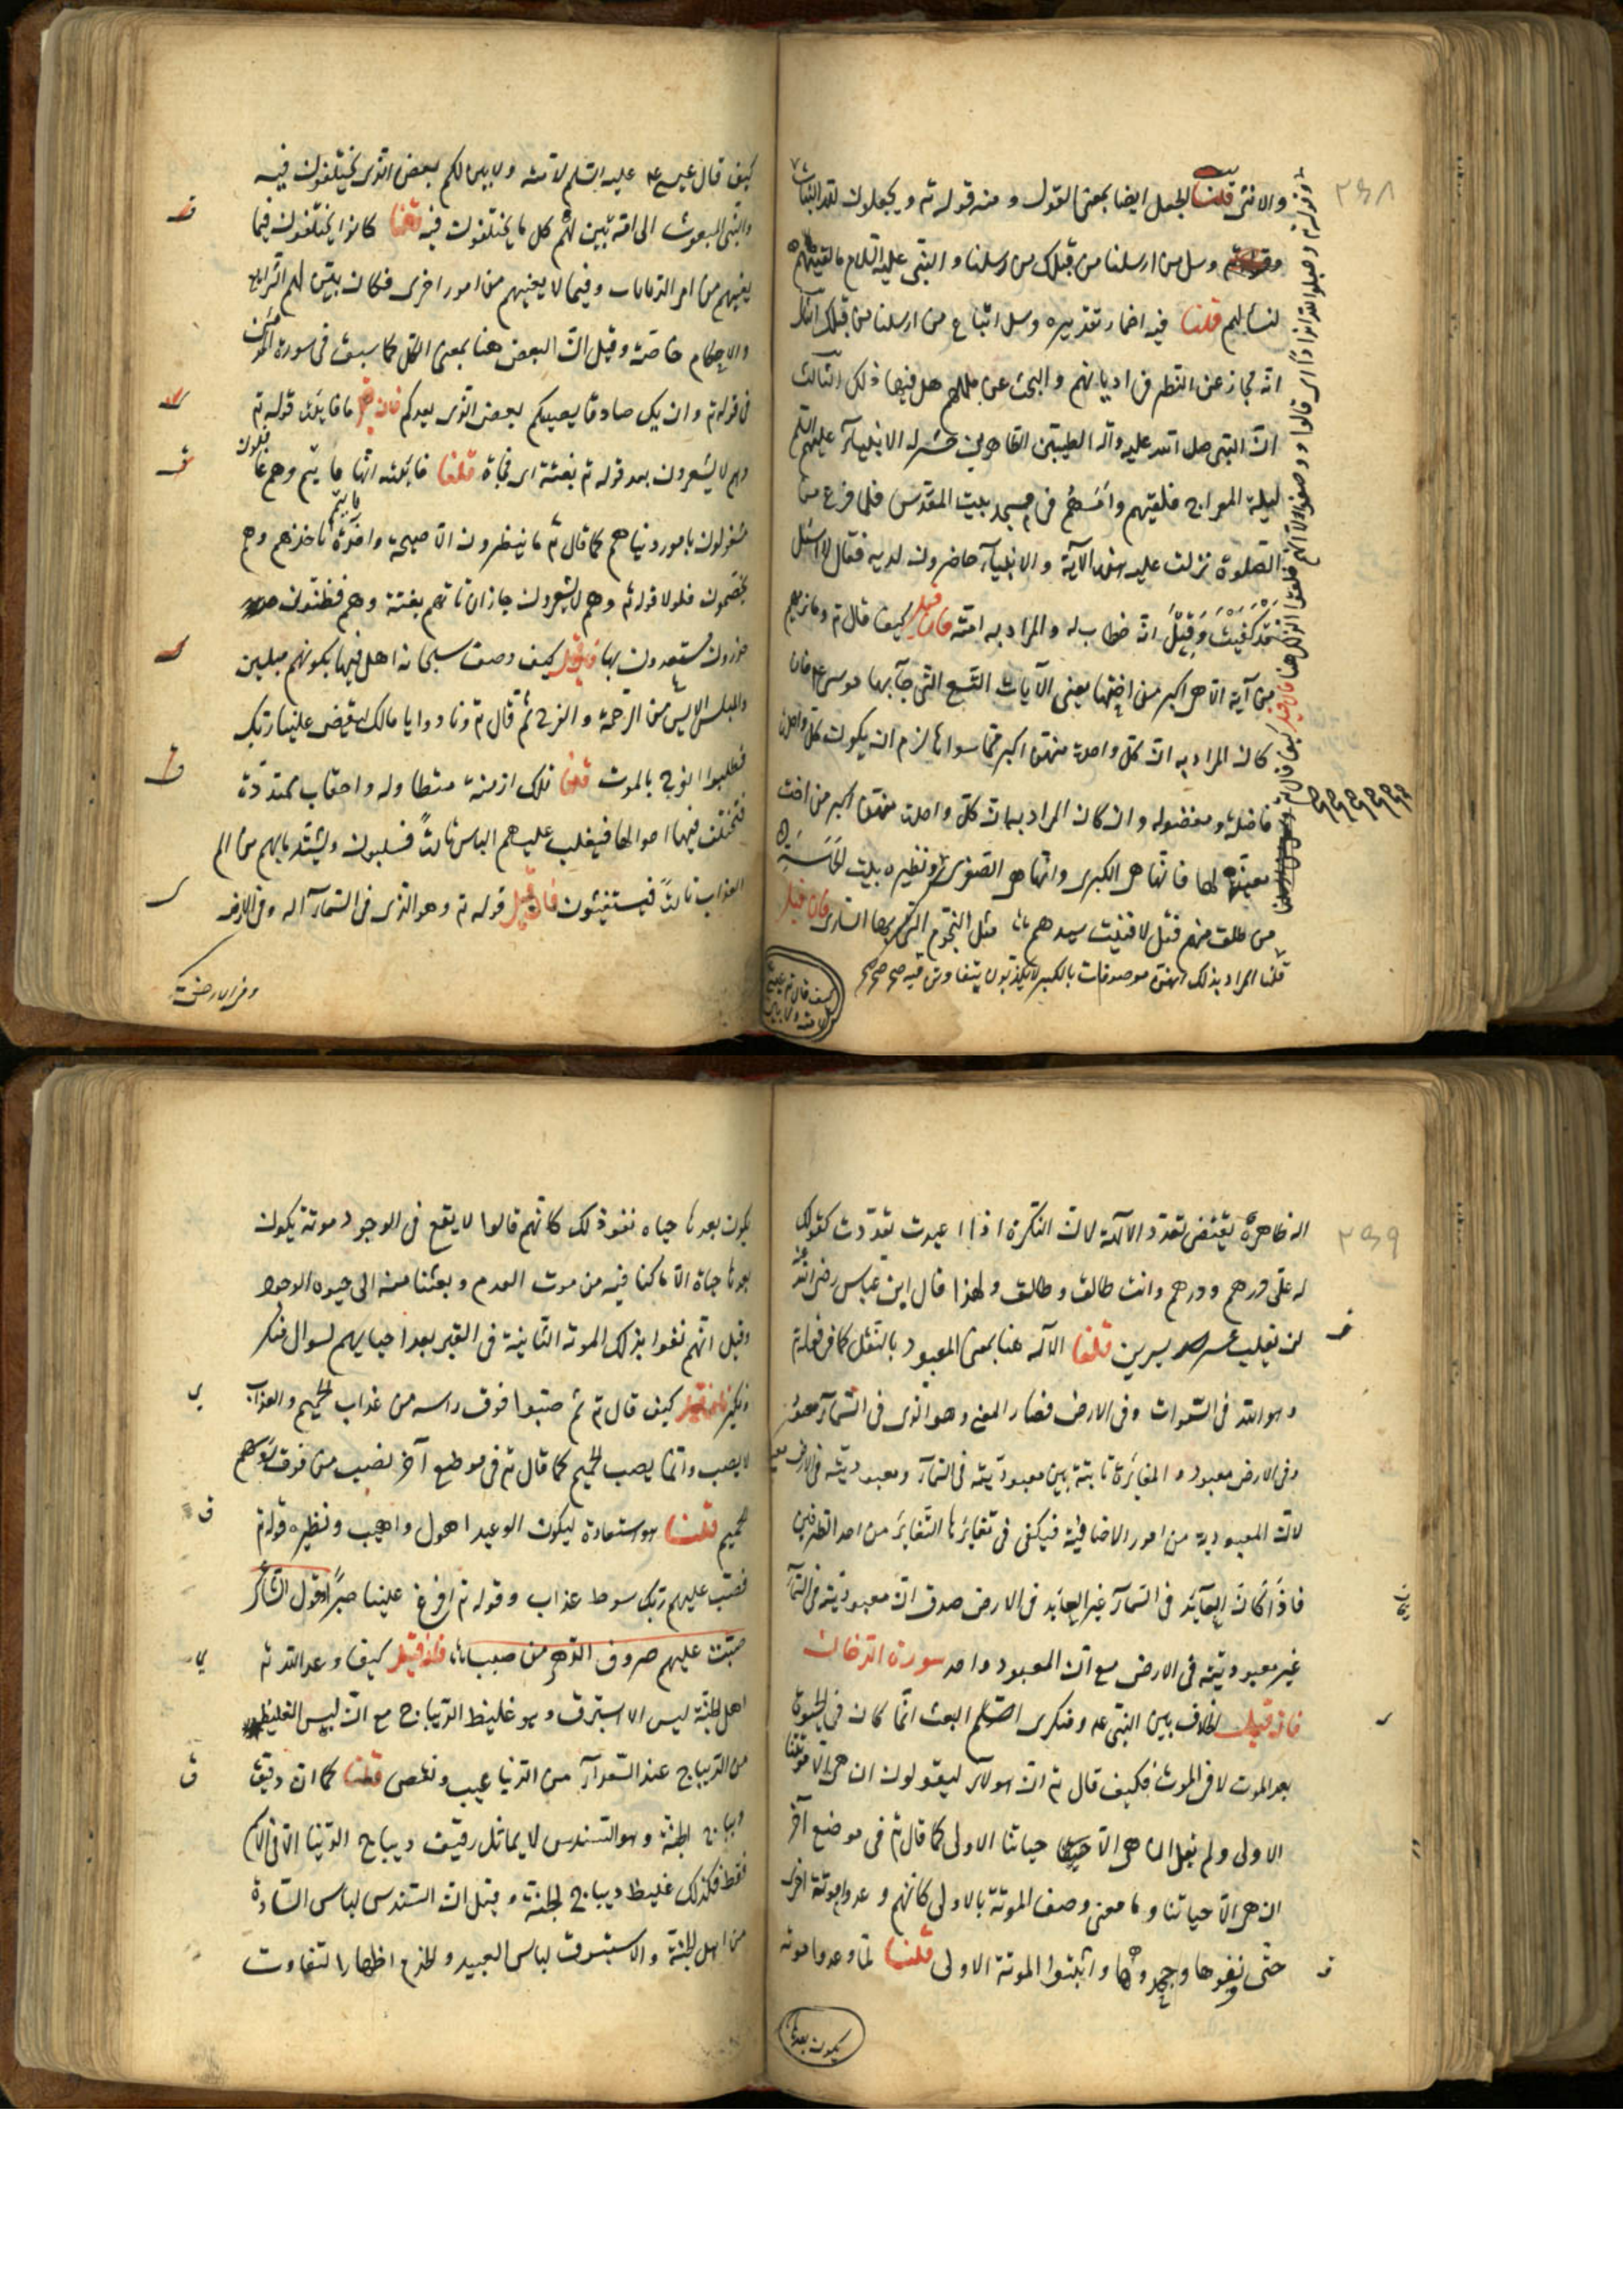 والانثى قلنا الجعل ايضا بمعنى القول ومنه قوله تم ويجعلون لله البنات
وسل من ارسلنا من قبلك من رسلنا والنبى عليه السلام ما لقيهم
لنسألهم قلنا فيه اضمار تقديره وسل اتباع من ارسلنا من قبلك
انه مجاز عن النظر فى اديانهم والبحث عن مللهم هل فيها ذلك الثالث
ان النبى صلى الله عليه وآله الطيبين الطاهرين حشر له الانبياء عليهم السلم
ليلة المعراج فلقيهم وامهم فى مسجد بيت المقدس فلما فرغ من
الصلوة نزلت عليه هذه الآية والانبياء حاضرون لديه فقال لا اسئل
قد كفيت وقيل انه خطاب له والمراد به امته فان قيل كيف قال تم وما نريهم
من آية الا هى اكبر من اختها يعنى الآيات التسع التى جآء بها موسى عم فان
كان المراد به ان كل واحدة منهن اكبر مما سواها لزم ان يكون كل واحدة
فاضلة ومفضولة وان كان المراد به ان كل واحدة منهن اكبر من اخت
معينة لها فانها هى الكبرى وانها هى الصغرى ونظيره بيت الحماسة
من تلق منهم تقل لاقيت سيدهم مثل النجوم التى يسرى بها السارى فان قيل
قلنا المراد بذلك انهن موصوفات بالكبر لا يكدن يتفاوتن فيه صح صح صح
كيف قال تم عيسى لامته ولابين
كيف قال عيسى عم عليه السلم لامته ولابين لكم بعض الذى تختلفون فيه
والنبى المبعوث الى امة يبين لهم كل ما يختلفون فيه قلنا كانوا يختلفون فيما
يعنيهم من امر الديانات وفيما لا يعنيهم من امور اخرى فكان يبين لهم الشرايع
والاحكام خاصة وقيل ان البعض هنا بمعنى الكل كما سبق فى سورة المؤمن
فى قوله تم وان يك صادقا يصيبكم بعض الذى يعدكم فان قيل ما فايدة قوله تم
وهم لا يشعرون بعد قوله تم بغتة اى فجأة قلنا فايدته انها تاتيهم وهم غافلون
مشغولون بامور دنياهم كما قال تم ما ينظرون الا صيحة واحدة تاخذهم وهم
يخصمون فلولا قوله تم وهم لا يشعرون جاز ان تاتيهم بغتة وهم فطنون
حذرون مستعدون بها فان قيل كيف وصف سبحانه اهل فيها بكونهم مبلسين
والمبلس الايس من الرحمة والفرج ثم قال تم ونادوا يا مالك ليقض علينا ربك
فطلبوا الفرج بالموت قلنا تلك ازمنة متطاولة واحقاب ممتدة
فتختلف فيها احوالها فيغلب عليهم الياس تارة فيسلبون ويشتد بهم من الم
العذاب تارة فيستغيثون فان قيل قوله تم وهو الذى فى السمآء اله وفى الارض
وفى الارض
اله ظاهره يقتضى تعدد الآلهة لان النكرة اذا اعيدت تعددت كقولك
له على درهم ودرهم وانت طالق وطالق ولهذا قال ابن عباس رضى الله عنه
لن يغلب عسر يسرين قلنا الآله هنا بمعنى المعبود بالنقل كما فى قوله تم
وهو الله فى السموات وفى الارض فصار المعنى وهو الذى فى السمآء معبود
وفى الارض معبود والمغايرة ثابتة بين معبوديته فى السمآء ومعبوديته فى الارض
لان المعبودية من امور الاضافية فيكفى فى تغايرها التغاير من احد الطرفين
فاذا كان العآبد فى السمآء غير العابد فى الارض صدق ان معبوديته فى السمآء
غير معبوديته فى الارض مع ان المعبود واحد سورة الدخان
فان قيل الخلاف بين النبى عم ومنكرى البعث انما كان فى الحيوة
بعد الموت لا فى الموت فكيف قال تم ان هولآء ليقولون ان هى الا موتتنا
الاولى ولم يقل ان هى الا حياتنا الاولى كما قال تم فى موضع آخر
ان هى الا حياتنا وما معنى وصف الموتة بالاولى كانهم وعدوا موتة اخرى
حتى نفوها وجحدوها واثبتوا الموتة الاولى قلنا لما وعدوا موتة
يكون بعدها
يكون بعدها حياة نفوا ذلك كانهم قالوا لا يقع فى الوجود موتة يكون
بعدها حياة الا ما كنا فيه من موت العدم وبعثنا منه الى حيوة الوجود
وقيل انهم نفوا بذلك الموتة الثانية فى القبر بعد احيايهم لسوال منكر
ونكير فان قيل كيف قال تم ثم صبوا فوق راسه من عذاب الحميم والعذاب
لا يصب وانما يصب الحميم كما قال تم فى موضع آخر يصب من فوق رؤسهم
الحميم قلنا هو استعارة ليكون الوعيد اهول واهيب ونظيره قوله تم
فصب عليهم ربك سوط عذاب وقوله تم افرغ علينا صبرا وقول الشاعر
صبت عليهم صروف الدهر من صبب فان قيل كيف وعد الله تم
اهل الجنة لبس الاستبرق وهو غليظ الديباج مع ان لبس الغليظ
من الديباج عند السعدآء من الدنيا عيب ونقص قلنا كما ان رقيق
ديباج الجنة وهو السندس لا يماثل رقيق ديباج الدنيا الا فى الاسم
فقط فكذلك غليظ ديباج الجنة وقيل ان السندس لباس السادة
من اهل الجنة والاستبرق لباس العبيد والخدم اظهارا لتفاوت